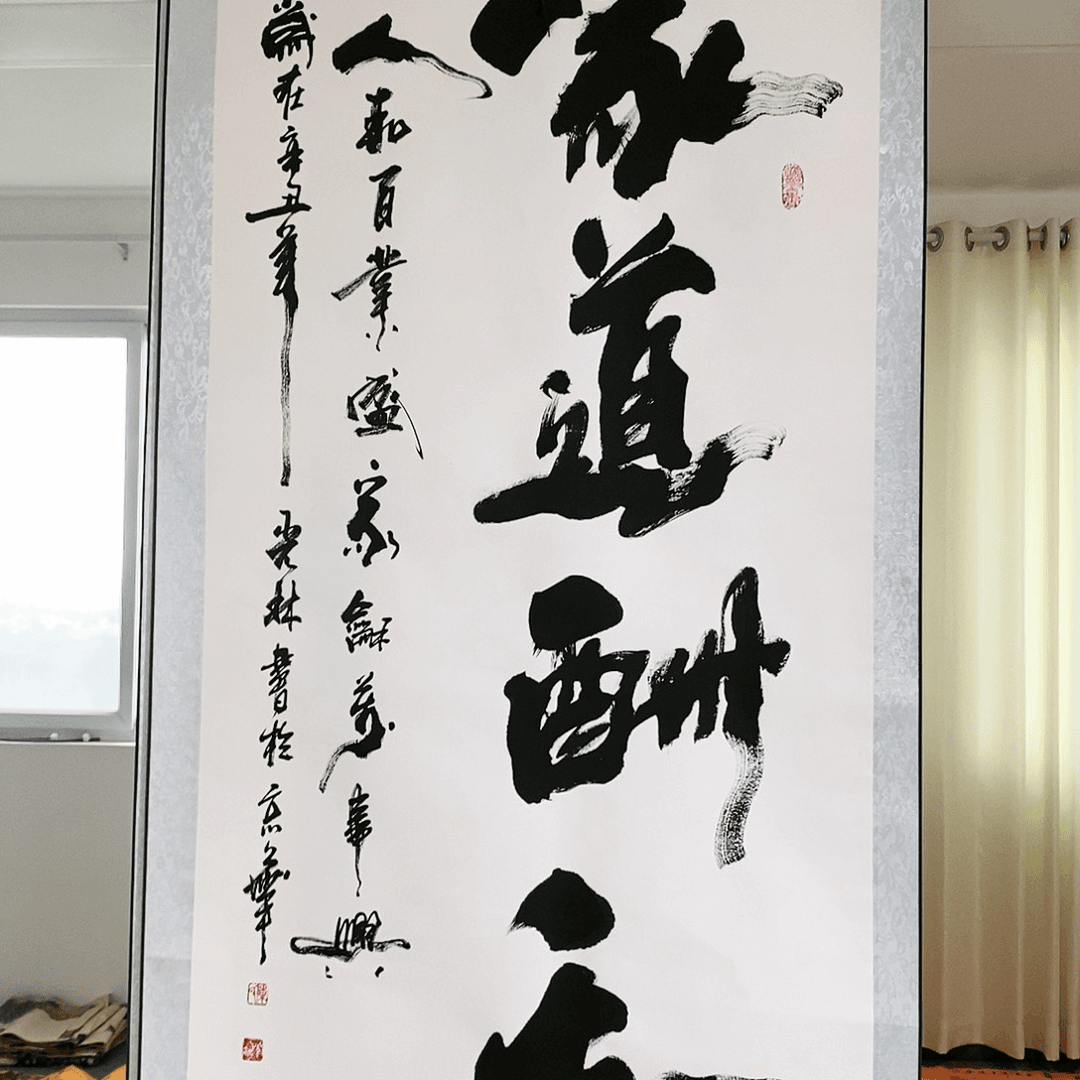 家道酬
人和百業盛家龢萬事興
歲在辛丑年 林書於京華